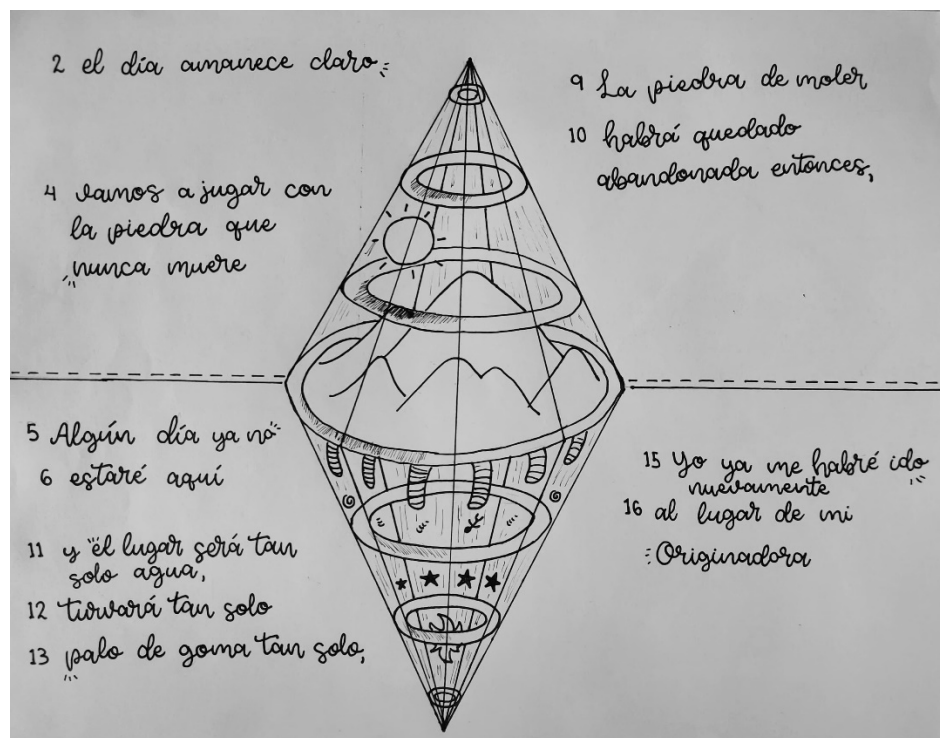 2 el día amanece claro
4 vamos a jugar con
la piedra que
nunca muere
5 Algún día ya no
6 estaré aquí
11 y el lugar será tan
solo agua,
12 turvará tan solo
13 palo de goma tan solo,
9 La piedra de moler
10 habrá quedado
abandonada entonces,
15 Yo ya me habré ido
nuevamente
16 al lugar de mi
Originadora